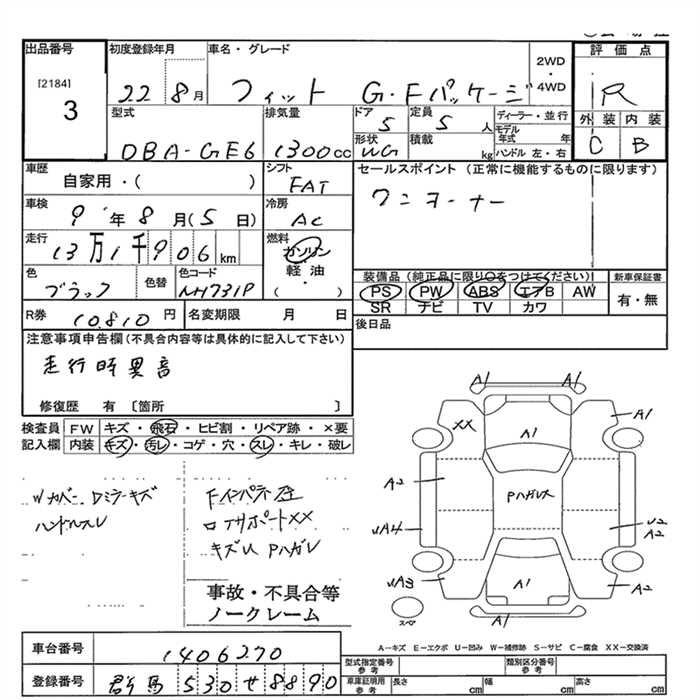 出品番号
[2184]
3
初度登録年月
22 8月
車名・グレード
フィット G・Fパッケージ
2WD
・
4WD
評価点
R
外装 内装
C B
型式
DBA-GE6
排気量
1300cc
ドア
5
定員
5 人
ディーラー・並行
モデル年式 年
ハンドル 左・右
形状
WG
積載
kg
車歴
自家用・( )
シフト
FAT
セールスポイント (正常に機能するものに限ります)
ワンオーナー
車検
9年8月(5日)
冷房
AC
走行
13万1千906km
燃料
ガソリン
軽油・
( )
装備品(純正品に限り○をつけてください)
PS PW ABS エアB AW
SR ナビ TV カワ
新車保証書
有・無
色
ブラック
色替
色コード
NH731P
R券 10,810円
名変期限 月 日
後日品
注意事項申告欄(不具合内容等は具体的に記入して下さい)
走行時異音
修復歴 有〔箇所 〕
検査員記入欄
FW キズ・飛石・ヒビ割・リペア跡・×要
内装 キズ・汚レ・コゲ・穴・スレ・キレ・破レ
Wカバー、Dミラーキズ
ハンドルスレ
FインパネF歪
ロアサポートXX
キズU Pハガレ
事故・不具合等
ノークレーム
A1 A1
XX A1 A1
A2 Pハガレス
UA4 U2
A2
UA3 A1 A2
A1
スペア
A-キズ E-エクボ U-凹み W-補修跡 S-サビ C-腐食 XX-交換済
車台番号 1406270
登録番号 群馬 530 せ 8890
型式指定番号 参考
類別区分番号 参考
車庫証明用 参考
長さ cm 幅 cm 高さ cm